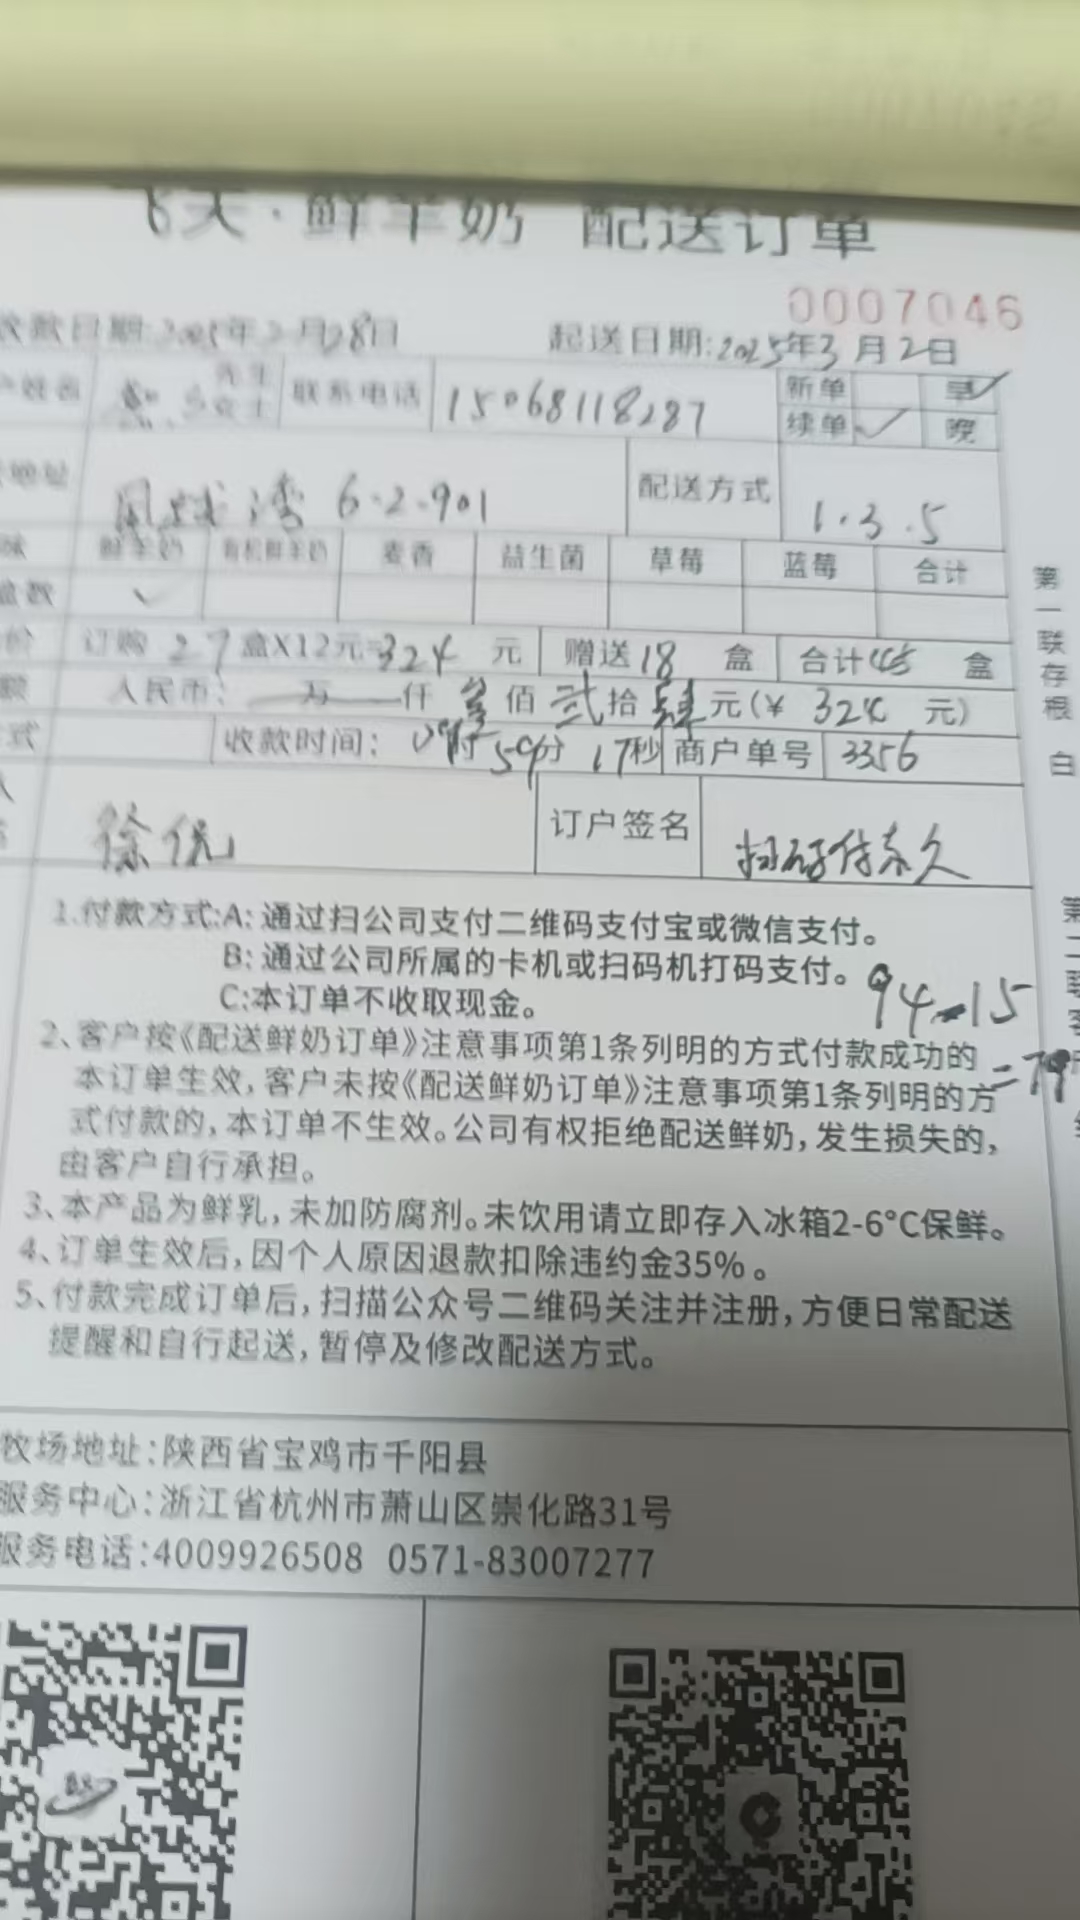 飞天·鲜羊奶 配送订单
0007046
收款日期:2025年2月28日 起送日期:2025年3月2日
户姓名 先生 女士 联系电话 15068118287 新单 早✓
续单 ✓ 晚
地址 6·2·901 配送方式 1·3·5
味 鲜羊奶 有机鲜羊奶 麦香 益生菌 草莓 蓝莓 合计
盒数 ✓
价 订购27盒X12元=324元 赠送18盒 合计45盒
额 人民币: 万 仟 叁佰贰拾肆元(¥ 324元)
式 收款时间: 09时59分17秒 商户单号 3356
人 徐 订户签名 扫码付
1.付款方式:A:通过扫公司支付二维码支付宝或微信支付。
B:通过公司所属的卡机或扫码机打码支付。
C:本订单不收取现金。
94-15
=79
2、客户按《配送鲜奶订单》注意事项第1条列明的方式付款成功的
本订单生效,客户未按《配送鲜奶订单》注意事项第1条列明的方
式付款的,本订单不生效。公司有权拒绝配送鲜奶,发生损失的,
由客户自行承担。
3、本产品为鲜乳,未加防腐剂。未饮用请立即存入冰箱2-6°C保鲜。
4、订单生效后,因个人原因退款扣除违约金35%。
5、付款完成订单后,扫描公众号二维码关注并注册,方便日常配送
提醒和自行起送,暂停及修改配送方式。
牧场地址:陕西省宝鸡市千阳县
服务中心:浙江省杭州市萧山区崇化路31号
服务电话:4009926508 0571-83007277
第一联存根 白
第二联客